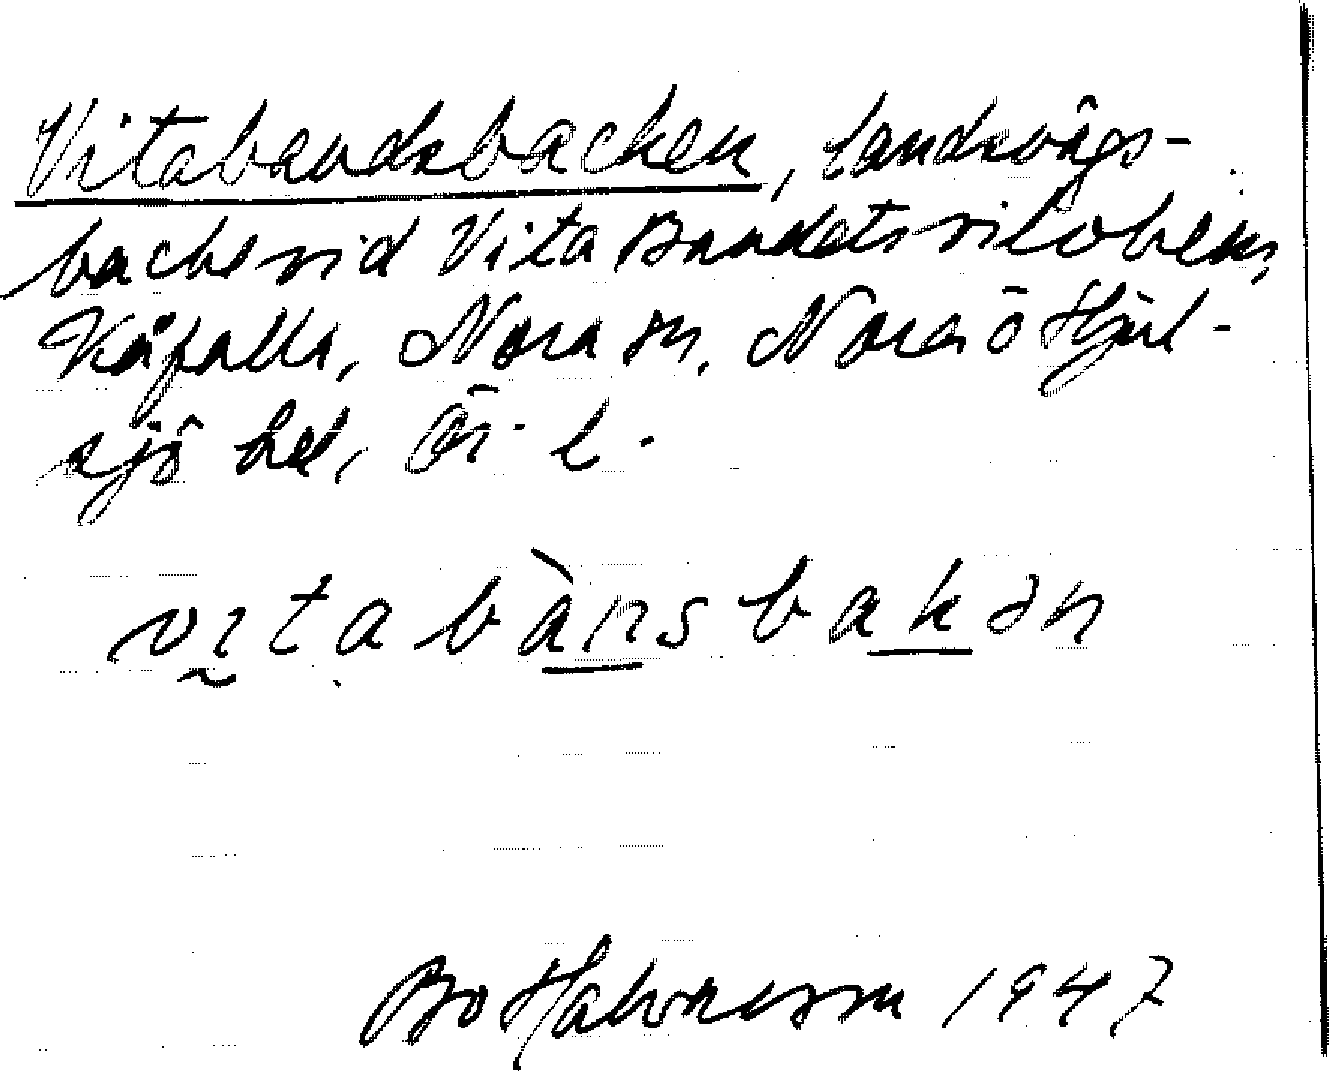 Vitabandsbacken, landsvägs-
backe vid Vita Bandets vilohem,
Kåfalla, Nora sn, Nora o Hjul-
sjö hd, Ör. l.
vita bànsbakən
Bo Halvarsson 1947